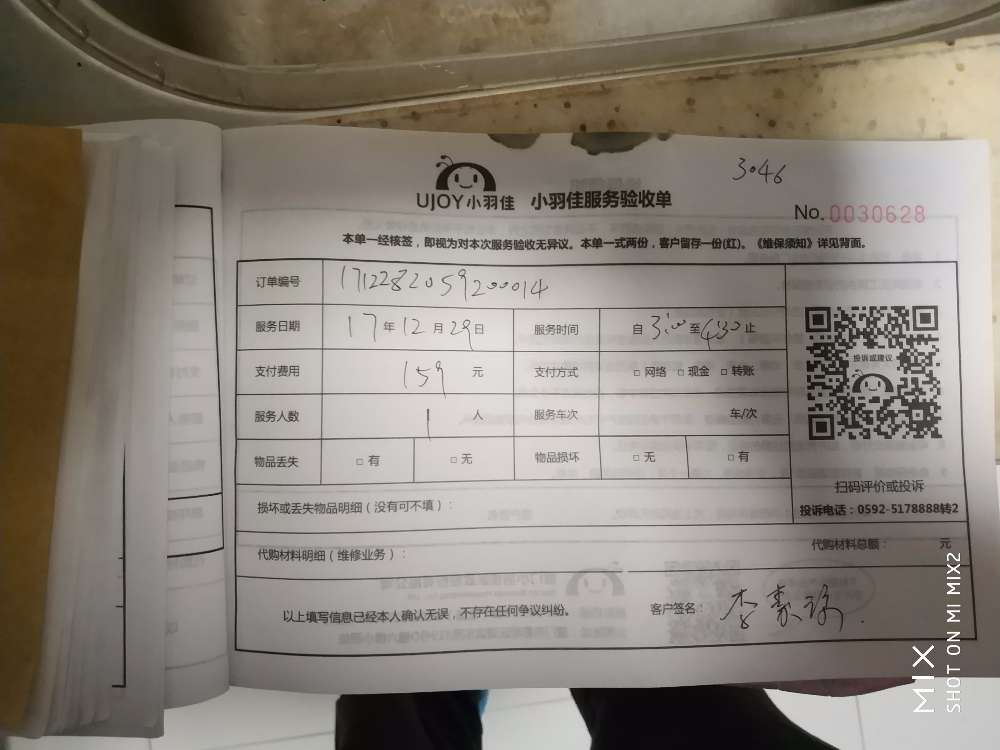 3046
UJOY小羽佳 小羽佳服务验收单
No.0030628
本单一经核签，即视为对本次服务验收无异议。本单一式两份，客户留存一份(红)。《维保须知》详见背面。
订单编号 1712282059200014
服务日期 17年12月29日 服务时间 自3:00至4:30止
支付费用 159元 支付方式 □网络 □现金 □转账
服务人数 1人 服务车次 车/次
物品丢失 □有 □无 物品损坏 □无 □有
投诉或建议
扫码评价或投诉
投诉电话：0592-5178888转2
损坏或丢失物品明细（没有可不填）：
代购材料明细（维修业务）： 代购材料总额： 元
以上填写信息已经本人确认无误 不存在任何争议纠纷。 客户签名：李
MIX
SHOT ON MI MIX2